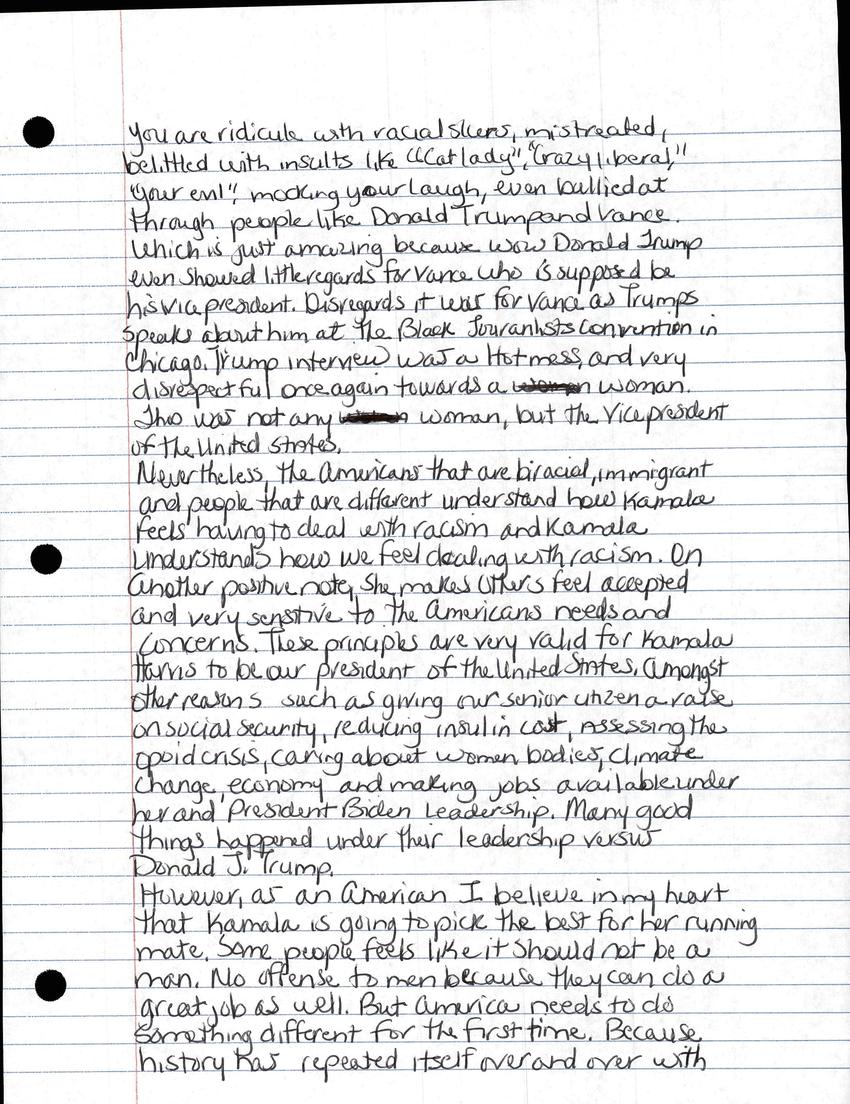 you are ridicule with racial slurs, mistreated,
belittled with insults like "Cat lady", "Crazy liberal,"
"Your evil", mocking your laugh, even bullied at
through people like Donald Trump and Vance.
Which is just amazing because wow Donald Trump
even showed little regards for Vance who is supposed be
his vice president. Disregards it was for Vance as Trumps
speaks about him at the Black Jouranlists Convention in
Chicago. Trump interview was a Hot mess, and very
disrespectful once again towards a woman.
This was not any woman, but the Vice president
of the United States.
Nevertheless, the Americans that are biracial, immigrant
and people that are different understand how Kamala
feels having to deal with racism and Kamala
understands how we feel dealing with racism. On
another positive note, She makes others feel accepted
and very sensitive to the Americans needs and
Concerns. These principles are very valid for Kamala
Harris to be our president of the United States. Amongst
other reasons such as giving our senior citizen a raise
on social security, reducing insulin cost, assessing the
opoid crisis, caring about women bodies, climate
change, economy and making jobs available under
her and President Biden Leadership. Many good
things happened under their leadership versus
Donald J. Trump.
However, as an American I believe in my heart
that Kamala is going to pick the best for her running
mate. Some people feels like it should not be a
man. No offense to men because they can do a
great job as well. But America needs to do
something different for the first time. Because
history has repeated itself over and over with